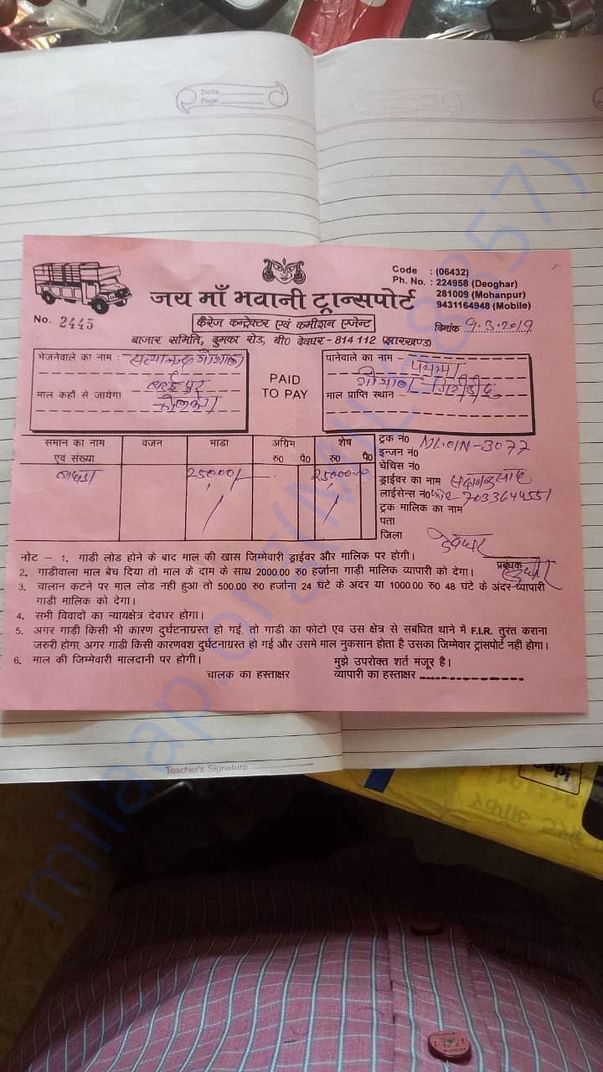 Date
Page
Code : (06432)
Ph. No. : 224958 (Deoghar)
281009 (Mohanpur)
9431164948 (Mobile)
जय माँ भवानी ट्रान्सपोर्ट
No. 2445
कैरेज कन्ट्रेक्टर एवं कमीशन एजेन्ट
दिनांक 9.3.2019
बाजार समिति, दुमका रोड, बी० देवघर - 814 112 (झारखण्ड)
भेजनेवाले का नाम : गौशाला
माल कहाँ से जायेगा
कोलकाता
PAID
TO PAY
पानेवाले का नाम -
गौशाला
माल प्राप्ति स्थान -
समान का नाम एवं संख्या वजन भाड़ा अग्रिम रु० पै० शेष रु० पै०
25000/- 25000
ट्रक नं० NL-01N-3077
इन्जन नं०
चेचिस नं०
ड्राईवर का नाम
लाईसेन्स नं० 7033644551
ट्रक मालिक का नाम
पता
जिला
प्रबंधक
नोट - 1. गाडी लोड होने के बाद माल की खास जिम्मेवारी ड्राईवर और मालिक पर होगी।
2. गाडीवाला माल बेच दिया तो माल के दाम के साथ 2000.00 रु० हर्जाना गाडी मालिक व्यापारी को देगा।
3. चालान कटने पर माल लोड नहीं हुआ तो 500.00 रु० हर्जाना 24 घंटे के अंदर या 1000.00 रु० 48 घंटे के अंदर व्यापारी
गाडी मालिक को देगा।
4. सभी विवादों का न्यायक्षेत्र देवघर होगा।
5. अगर गाडी किसी भी कारण दुर्घटनाग्रस्त हो गई, तो गाडी का फोटो एवं उस क्षेत्र से संबंधित थाने में F.I.R. तुरंत कराना
जरुरी होगा, अगर गाडी किसी कारणवश दुर्घटनाग्रस्त हो गई और उसमे माल नुकसान होता है उसका जिम्मेवार ट्रांसपोर्ट नही होगा।
6. माल की जिम्मेवारी मालदानी पर होगी।
मुझे उपरोक्त शर्त मंजूर है।
चालक का हस्ताक्षर
व्यापारी का हस्ताक्षर
Teacher's Signature